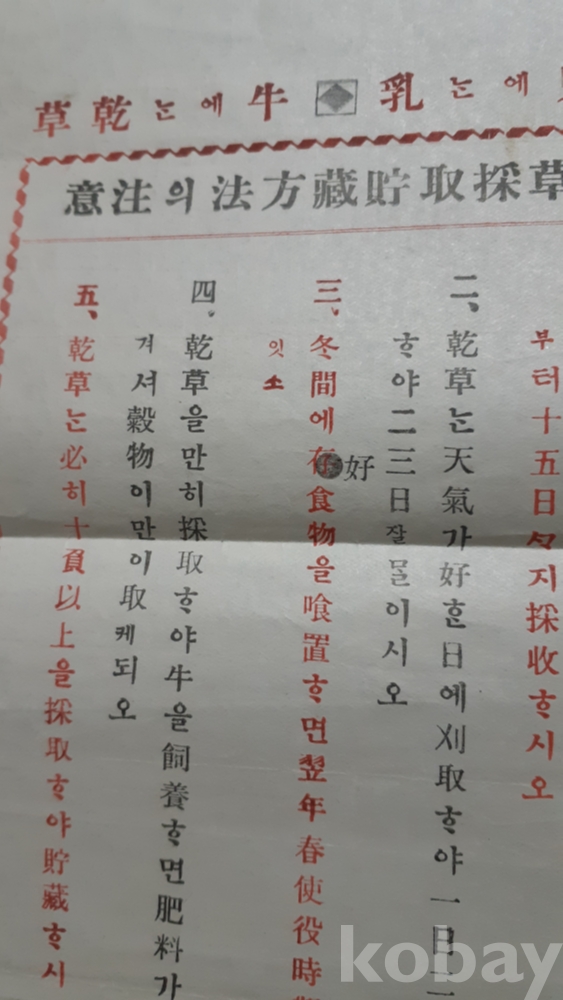 에는 乳 牛에는 乾草
草採取貯藏方法의注意
부터十五日ᄭᆞ지採收ᄒᆞ시오
二、乾草는天氣가好ᄒᆞᆫ日에刈取ᄒᆞ야一日二
ᄒᆞ야二三日잘몰이시오
好
三、冬間에在食物을喰置ᄒᆞ면翌年春使役時
잇소
四、乾草을만히採取ᄒᆞ야牛을飼養ᄒᆞ면肥料가
겨셔穀物이만이取케되오
五、乾草는必히十負以上을採取ᄒᆞ야貯藏ᄒᆞ시
kobay